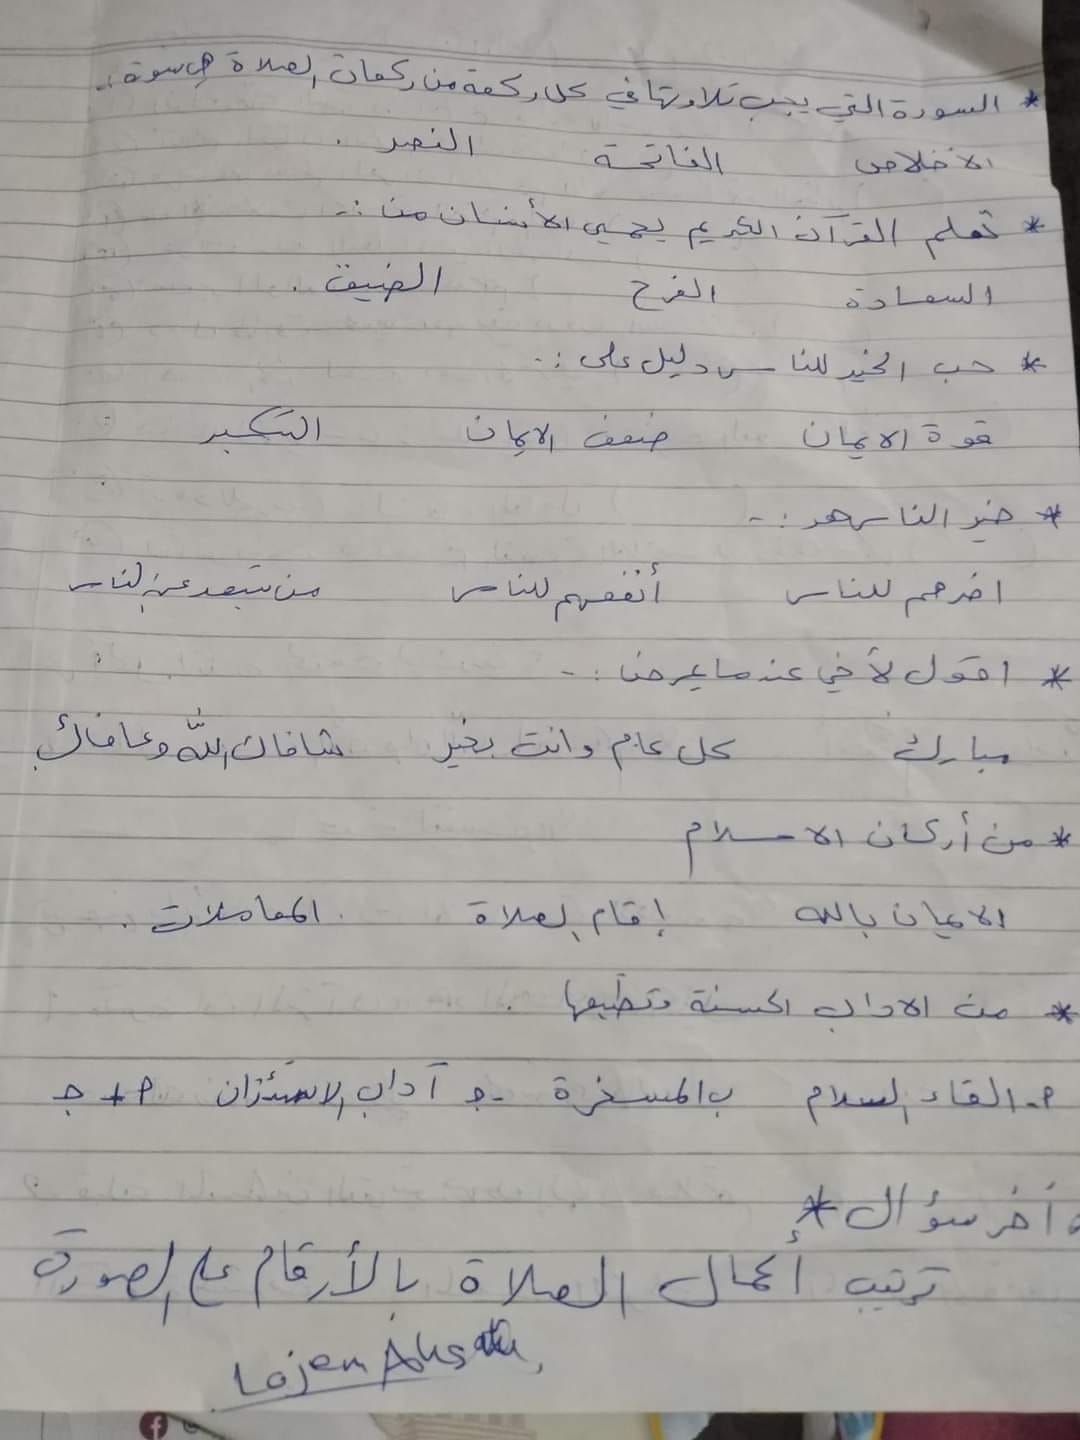 * السورة التي يجب تلاوتها في كل ركعة من ركعات الصلاة هي سورة :.
الاخلاص الفاتحة النصر .
* تعلم القرآن الكريم يحمي الأنسان من :-
السعادة الفرح الضيق .
* حب الخير للناس دليل على :-
قوة الايمان ضعف الايمان التكبر
* خير الناس هو :-
اضرهم للناس أنفعهم للناس من يبتعد عن الناس
* اقول لأخي عندما يمرض :-
مبارك كل عام وانت بخير شافاك الله وعافاك
* من أركان الاسلام
الايمان بالله إقام الصلاة المعاملات .
* من الاداب الحسنة وتطبيعها
م. القاء السلام ب المسخرة ج- آداب الاستئذان م + ج
أخر سؤال *
ترتيب إكمال الصلاة بالأرقام على الصورة
Lojen